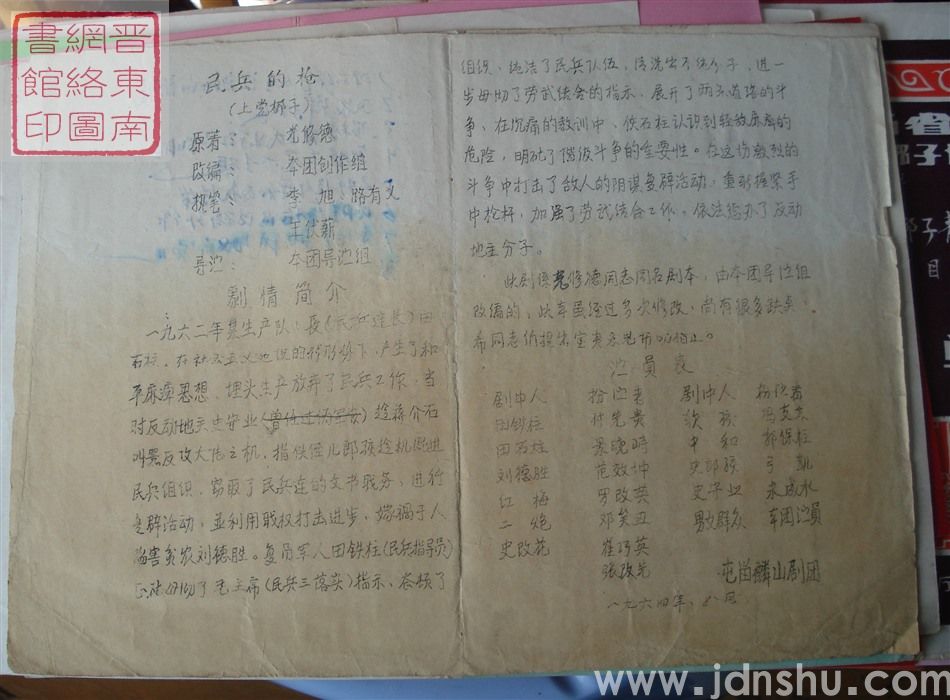 晋东南
網絡圖
書館印
民兵的枪
(上党梆子)
原著: 尤修德
改编: 本团创作组
执笔: 李旭、路有义
王伙薪
导演: 本团导演组
剧情简介
一九六二年某生产队长(民兵连长)田
石柱,在社会主义建设的新形势下,产生了和
平麻痹思想,埋头生产放弃了民兵工作,当
时反动地主史守业(曾任过伪军官)趁蒋介石
叫嚣反攻大陆之机,指使侄儿郎孩趁机混进
民兵组织,窃取了民兵连的文书职务,进行
复辟活动,並利用职权打击进步,嫁祸于人
陷害贫农刘德胜。复员军人田铁柱(民兵指导员)
正确贯彻了毛主席(民兵三落实)指示,整顿了
组织,纯洁了民兵队伍,清洗出不纯分子,进一
步贯彻了劳武结合的指示,展开了两条道路的斗
争、在沉痛的教训中,使石柱认识到轻敌麻痹的
危险,明确了阶级斗争的重要性。在这场激烈的
斗争中打击了敌人的阴谋复辟活动,重新握紧手
中枪杆,加强了劳武结合工作,依法惩办了反动
地主分子。
此剧系尤修德同志同名剧本,由本团导演组
改编的,此本虽经过多次修改,尚有很多缺点,
希同志们提出宝贵意见
演员表
剧中人 扮演者 剧中人 扮演者
田铁柱 付先贵
田石柱 景晚时 中和 郭保柱
刘德胜 范效坤 史郎孩 弓凯
红梅 罗改英 史守业 未成水
二炮 男女群众 本团演员
史改花 崔巧英
张改先 屯留麟山剧团
一九六四年、八月
www.jdnshu.com